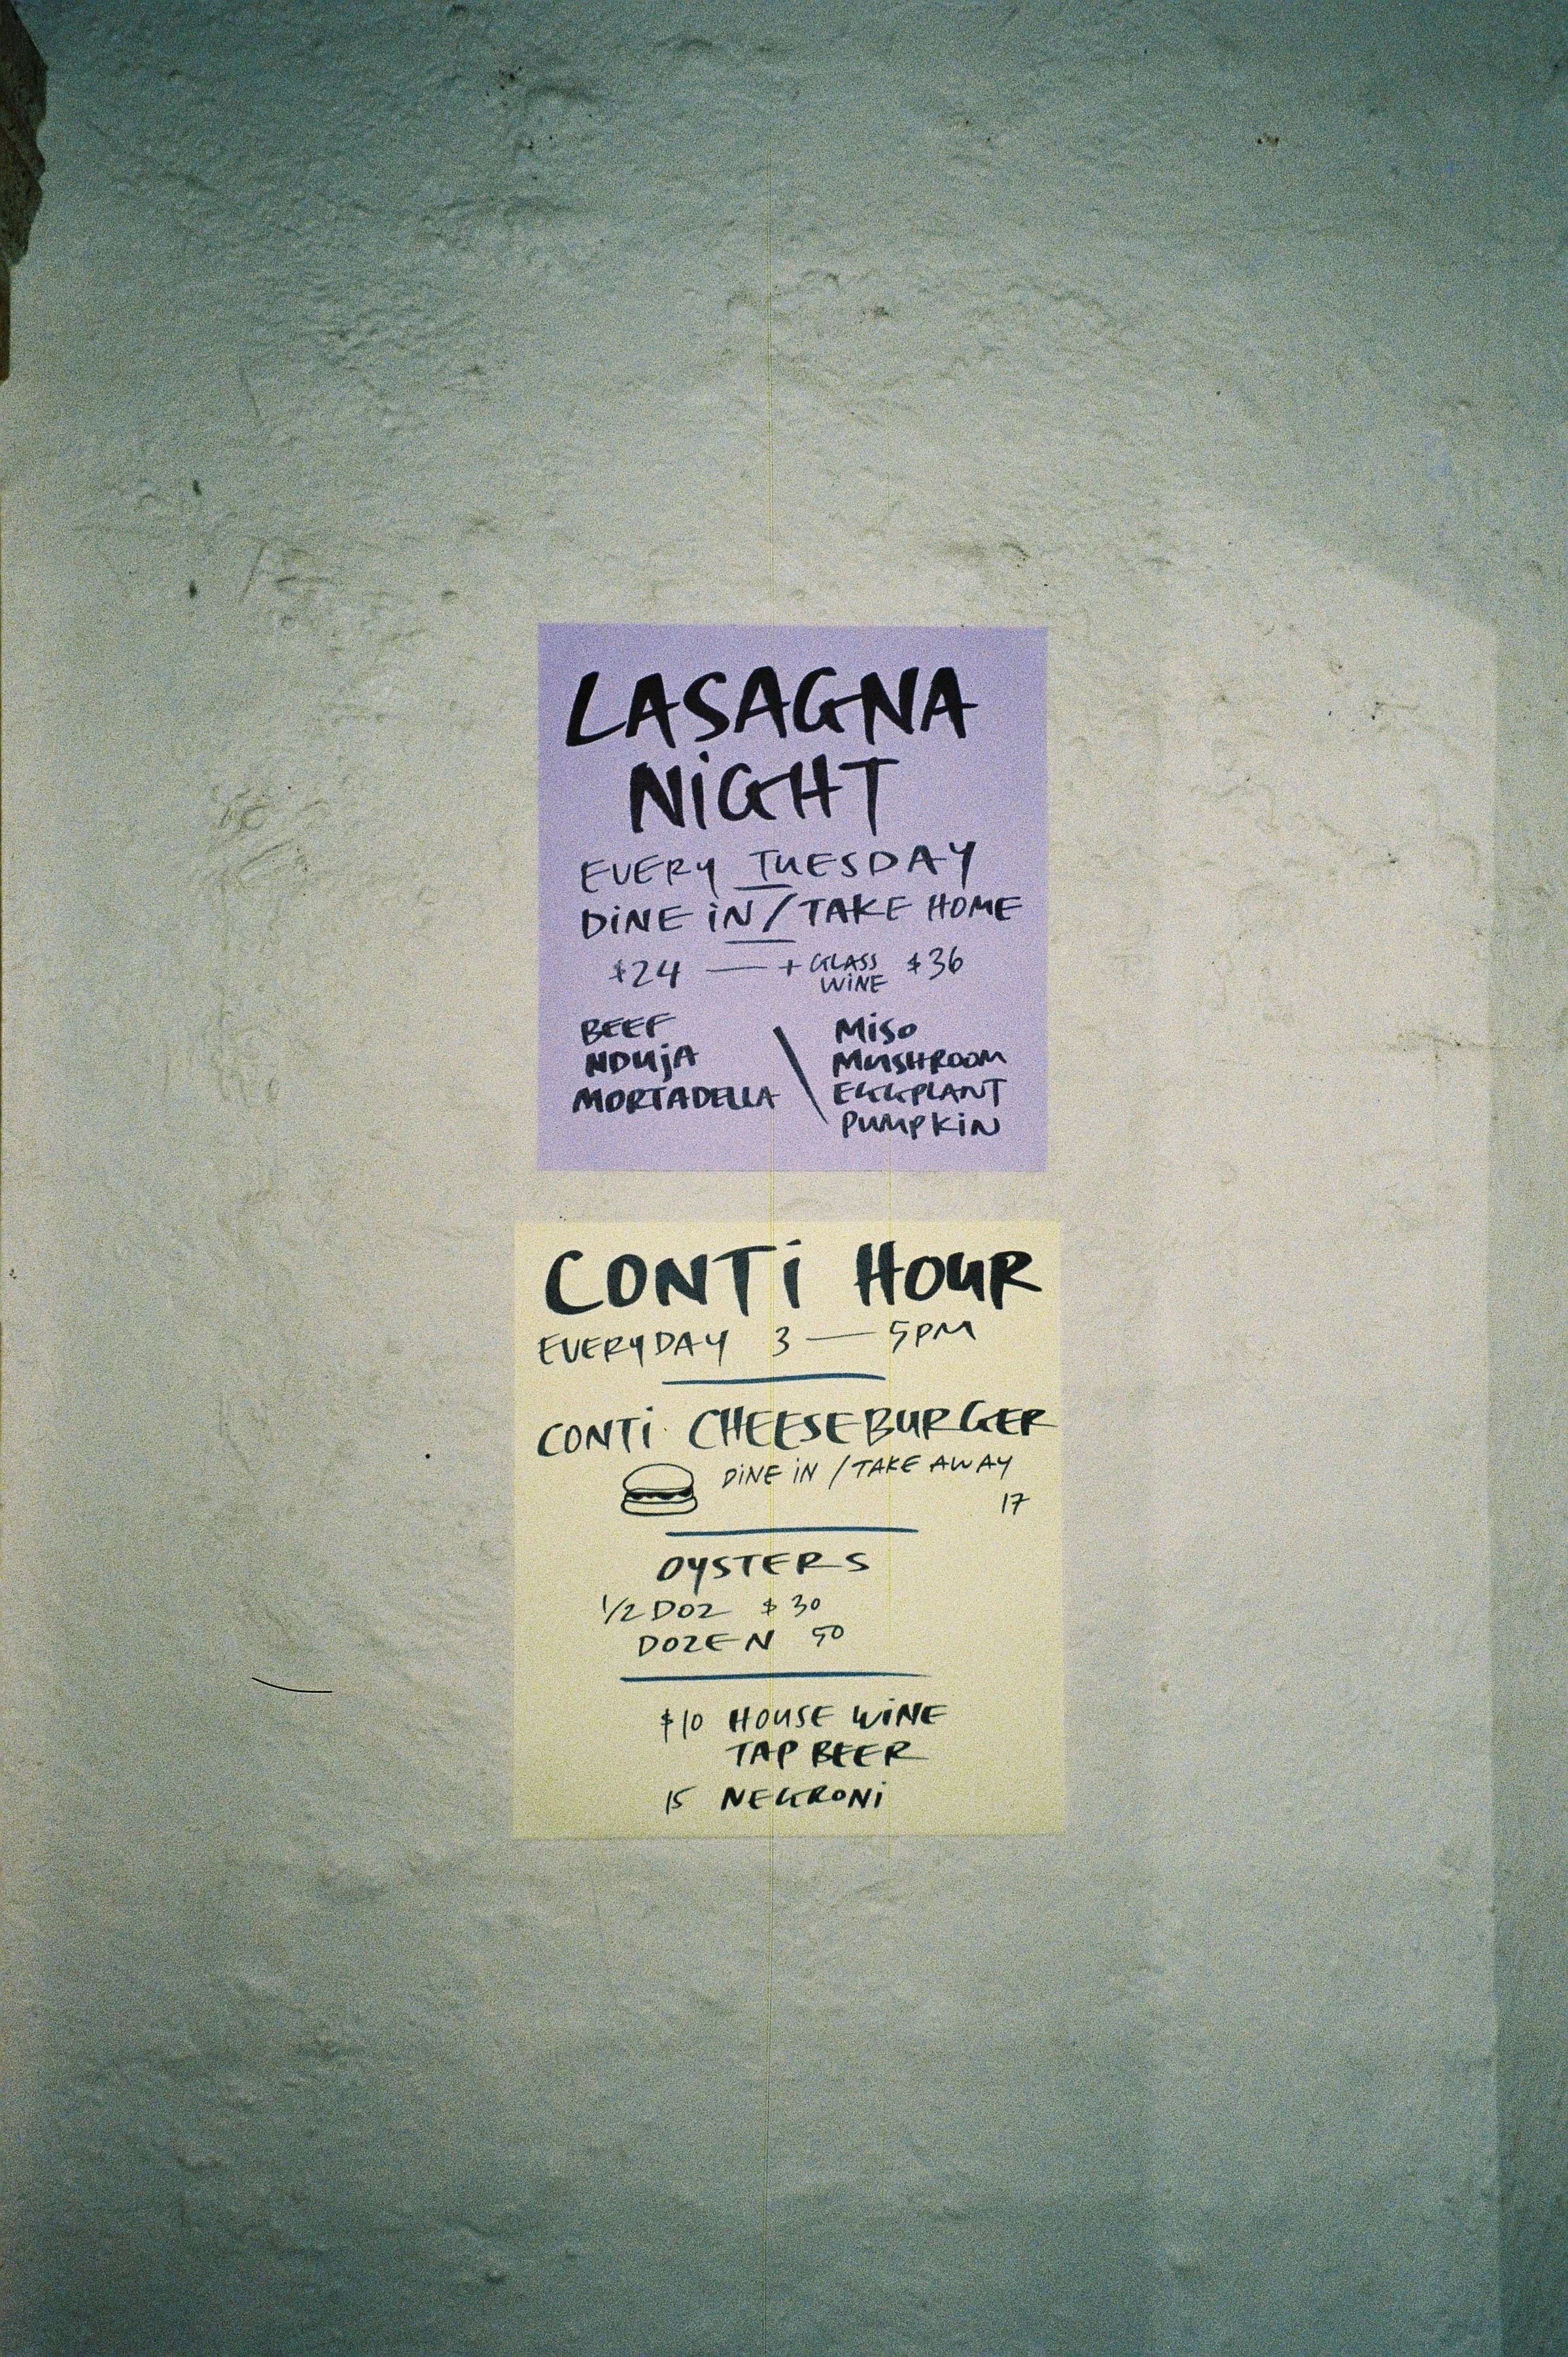 LASAGNA
NiGHT
EVERY TUESDAY
DiNE iN/TAKE HOME
$24 — + GLASS WiNE $36
BEEF
NDUjA
MORTADELLA
\
MiSo
MUSHROOM
EGGPLANT
PUMPKiN
CONTi HOUR
EVERYDAY 3 — 5PM
CONTi CHEESEBURGER
DiNE iN / TAKE AWAY
17
OYSTERS
1/2 DOZ $30
DOZEN 50
$10 HOUSE WiNE
TAP BEER
15 NEGRONi